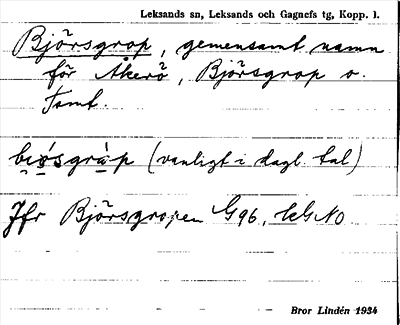 Leksands sn, Leksands och Gagnefs tg, Kopp. l.
Björsgrop, gemensamt namn
för Åkerö, Björsgrop o.
Tomt.
(vanligt i dagl tal)
Jfr Björsgropen G96,
Bror Lindén 1934